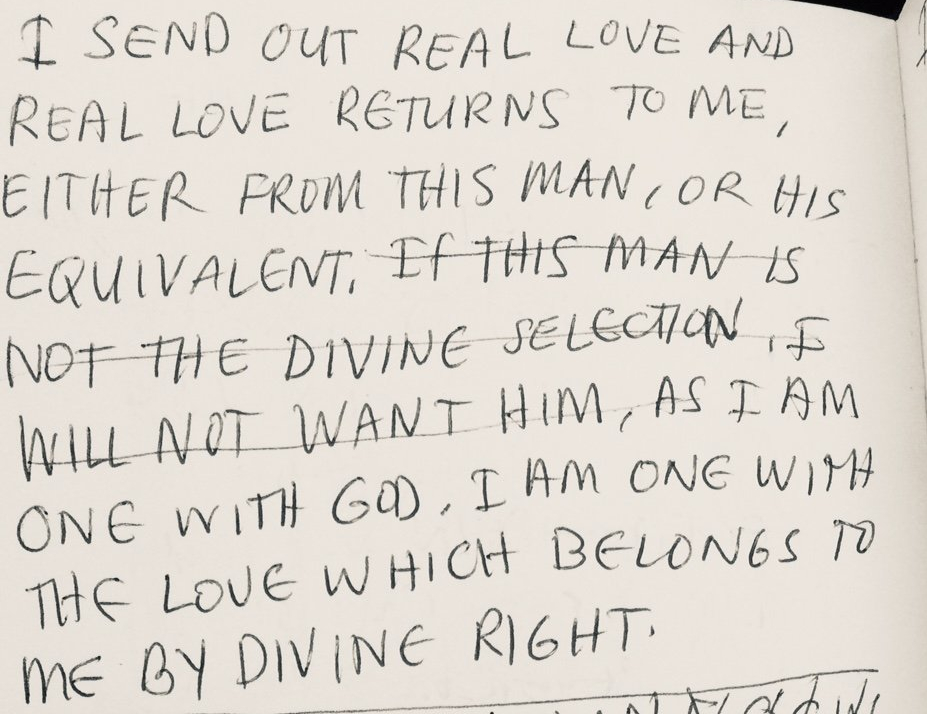 I SEND OUT REAL LOVE AND
REAL LOVE RETURNS TO ME,
EITHER FROM THIS MAN, OR HIS
EQUIVALENT. If THIS MAN IS
NOT THE DIVINE SELECTION, I
WILL NOT WANT HIM, AS I AM
ONE WITH GOD. I AM ONE WITH
THE LOVE WHICH BELONGS TO
ME BY DIVINE RIGHT.